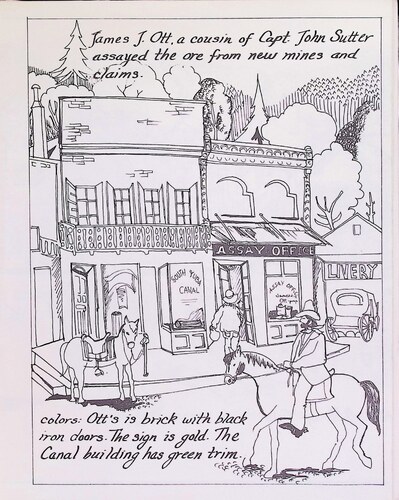 James J. Ott, a cousin of Capt. John Sutter
assayed the ore from new mines and
claims.
ASSAY OFFICE
SOUTH YUBA
CANAL
ASSAY OFF
LIVERY
colors: Ott's is brick with black
iron doors. The sign is gold. The
Canal building has green trim.